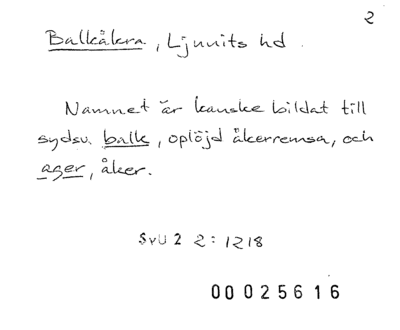 2
Balkåkra, Ljunits hd.
Namnet är kanske bildat till
sydsv. balk, oplöjd åkerremsa, och
ager, åker.
SvU 2 2:1218
00025616